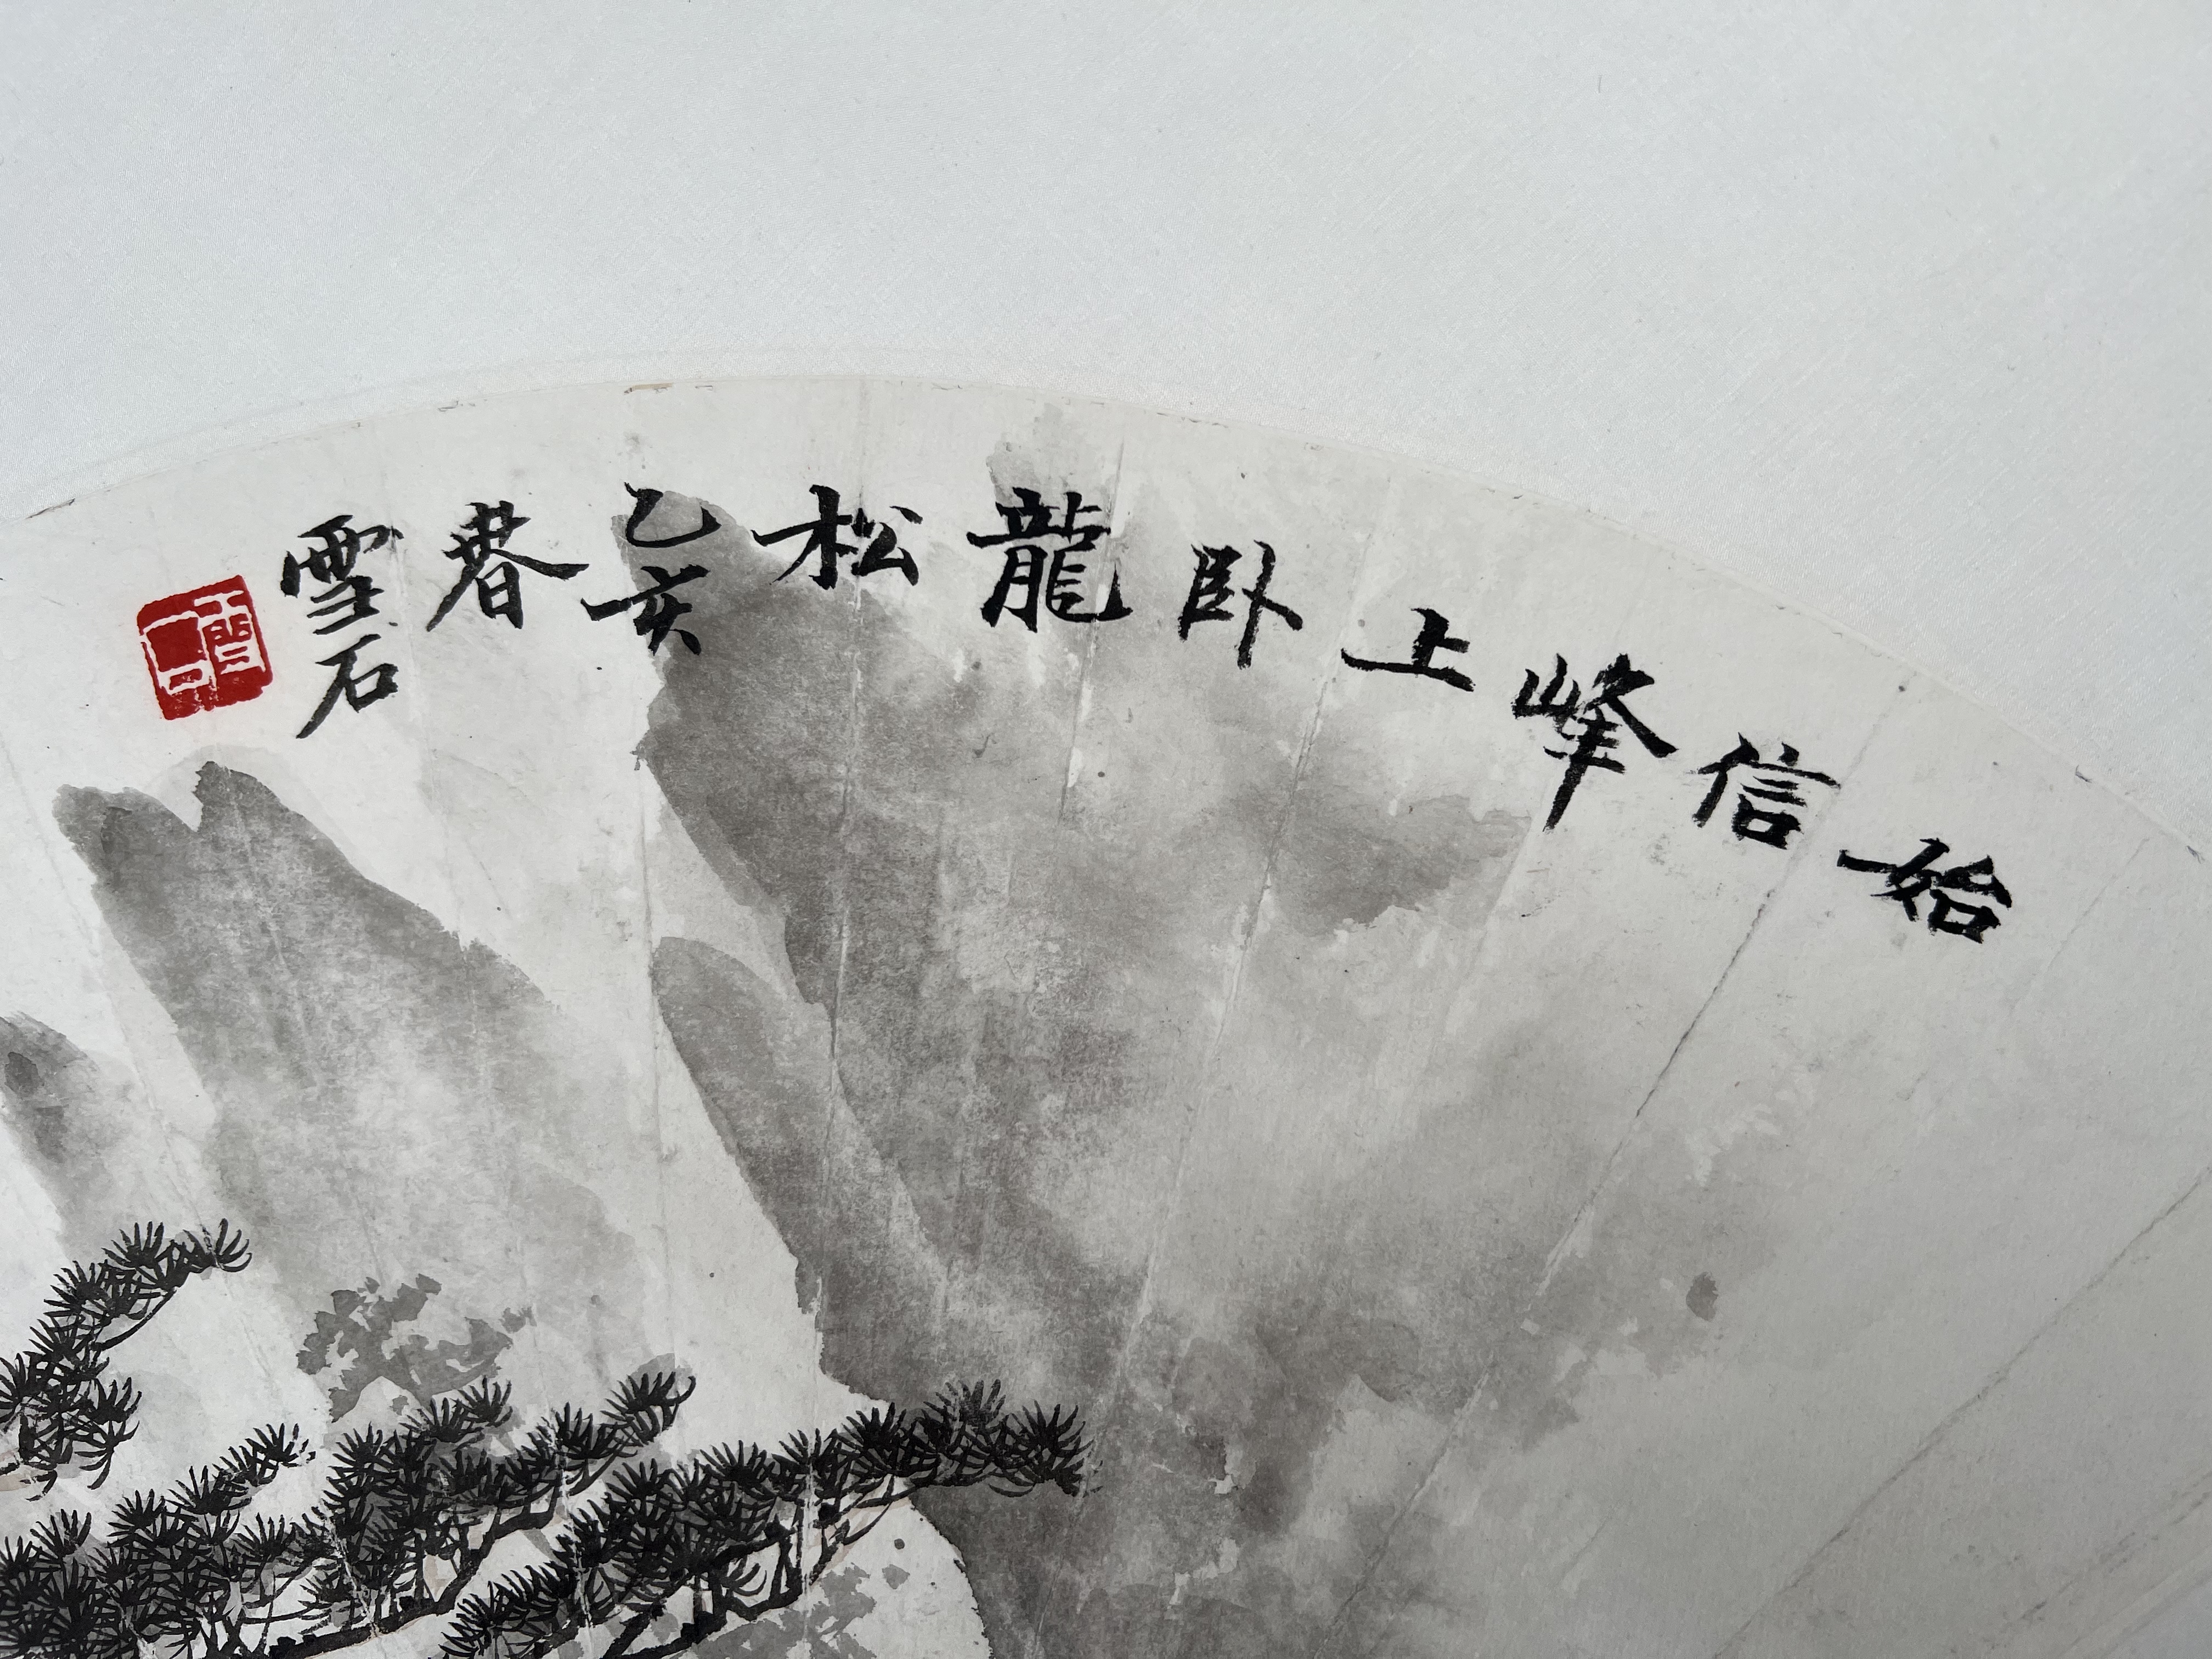 始信峰上卧龍松
乙亥
春
雪石
雪石